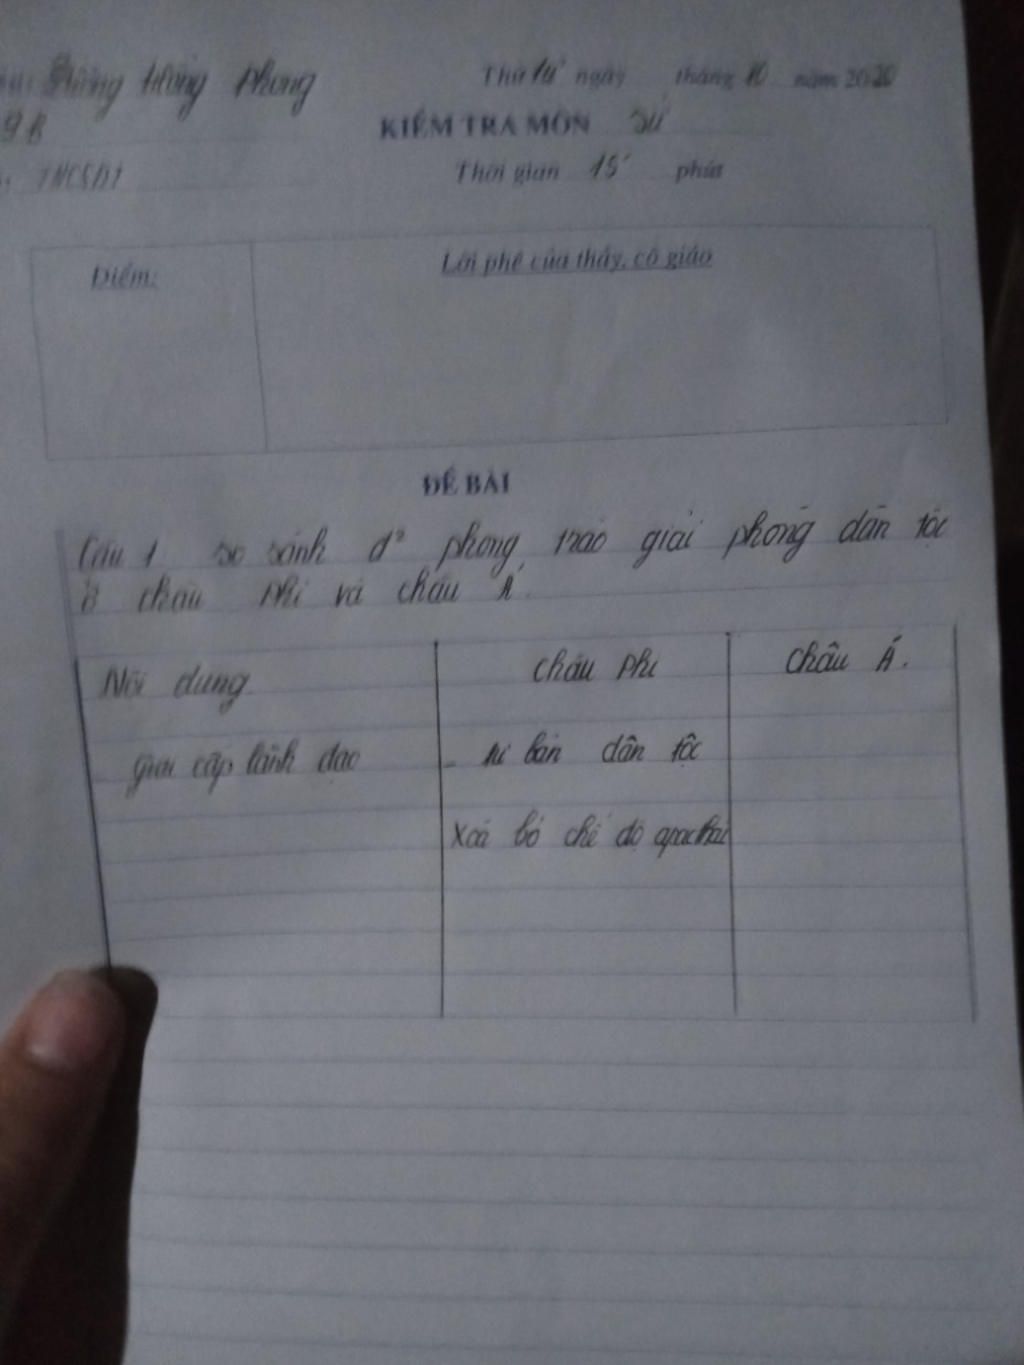 Hồng Phong
Thứ tư ngày tháng 10 năm 2020
9B
KIỂM TRA MÔN Sử
THCSĐT
Thời gian 15' phút
Điểm:
Lời phê của thầy, cô giáo
ĐỀ BÀI
Câu 1 so sánh d² phong trào giải phóng dân tộc
ở châu phi và châu Á.
Nội dung châu phi châu Á.
giai cấp lãnh đạo - tư bản dân tộc
Xoá bỏ chế độ apacthai